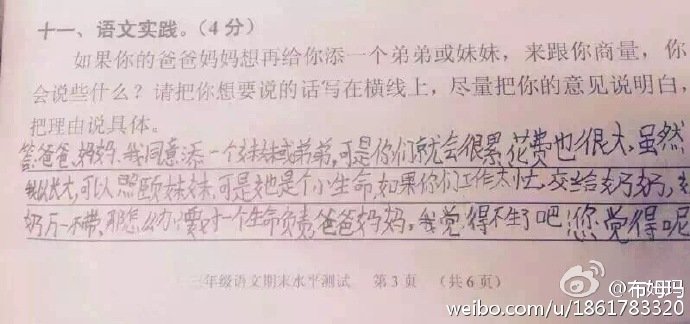 十一、语文实践。（4分）
如果你的爸爸妈妈想再给你添一个弟弟或妹妹，来跟你商量，你
会说些什么？请把你想要说的话写在横线上，尽量把你的意见说明白，
把理由说具体。
答：爸爸、妈妈，我同意添一个妹妹或弟弟，可是你们就会很累，花费也很大，虽然
我以长大，可以照颐妹妹，可是她是个小生命，如果你们工作太忙，交给奶奶，
奶万一不带，那怎么办，要对一个生命负责爸爸妈妈，我觉得不生了吧您觉得呢
三年级语文期末水平测试 第3页 （共6页）
@布姆玛
weibo.com/u/1861783320